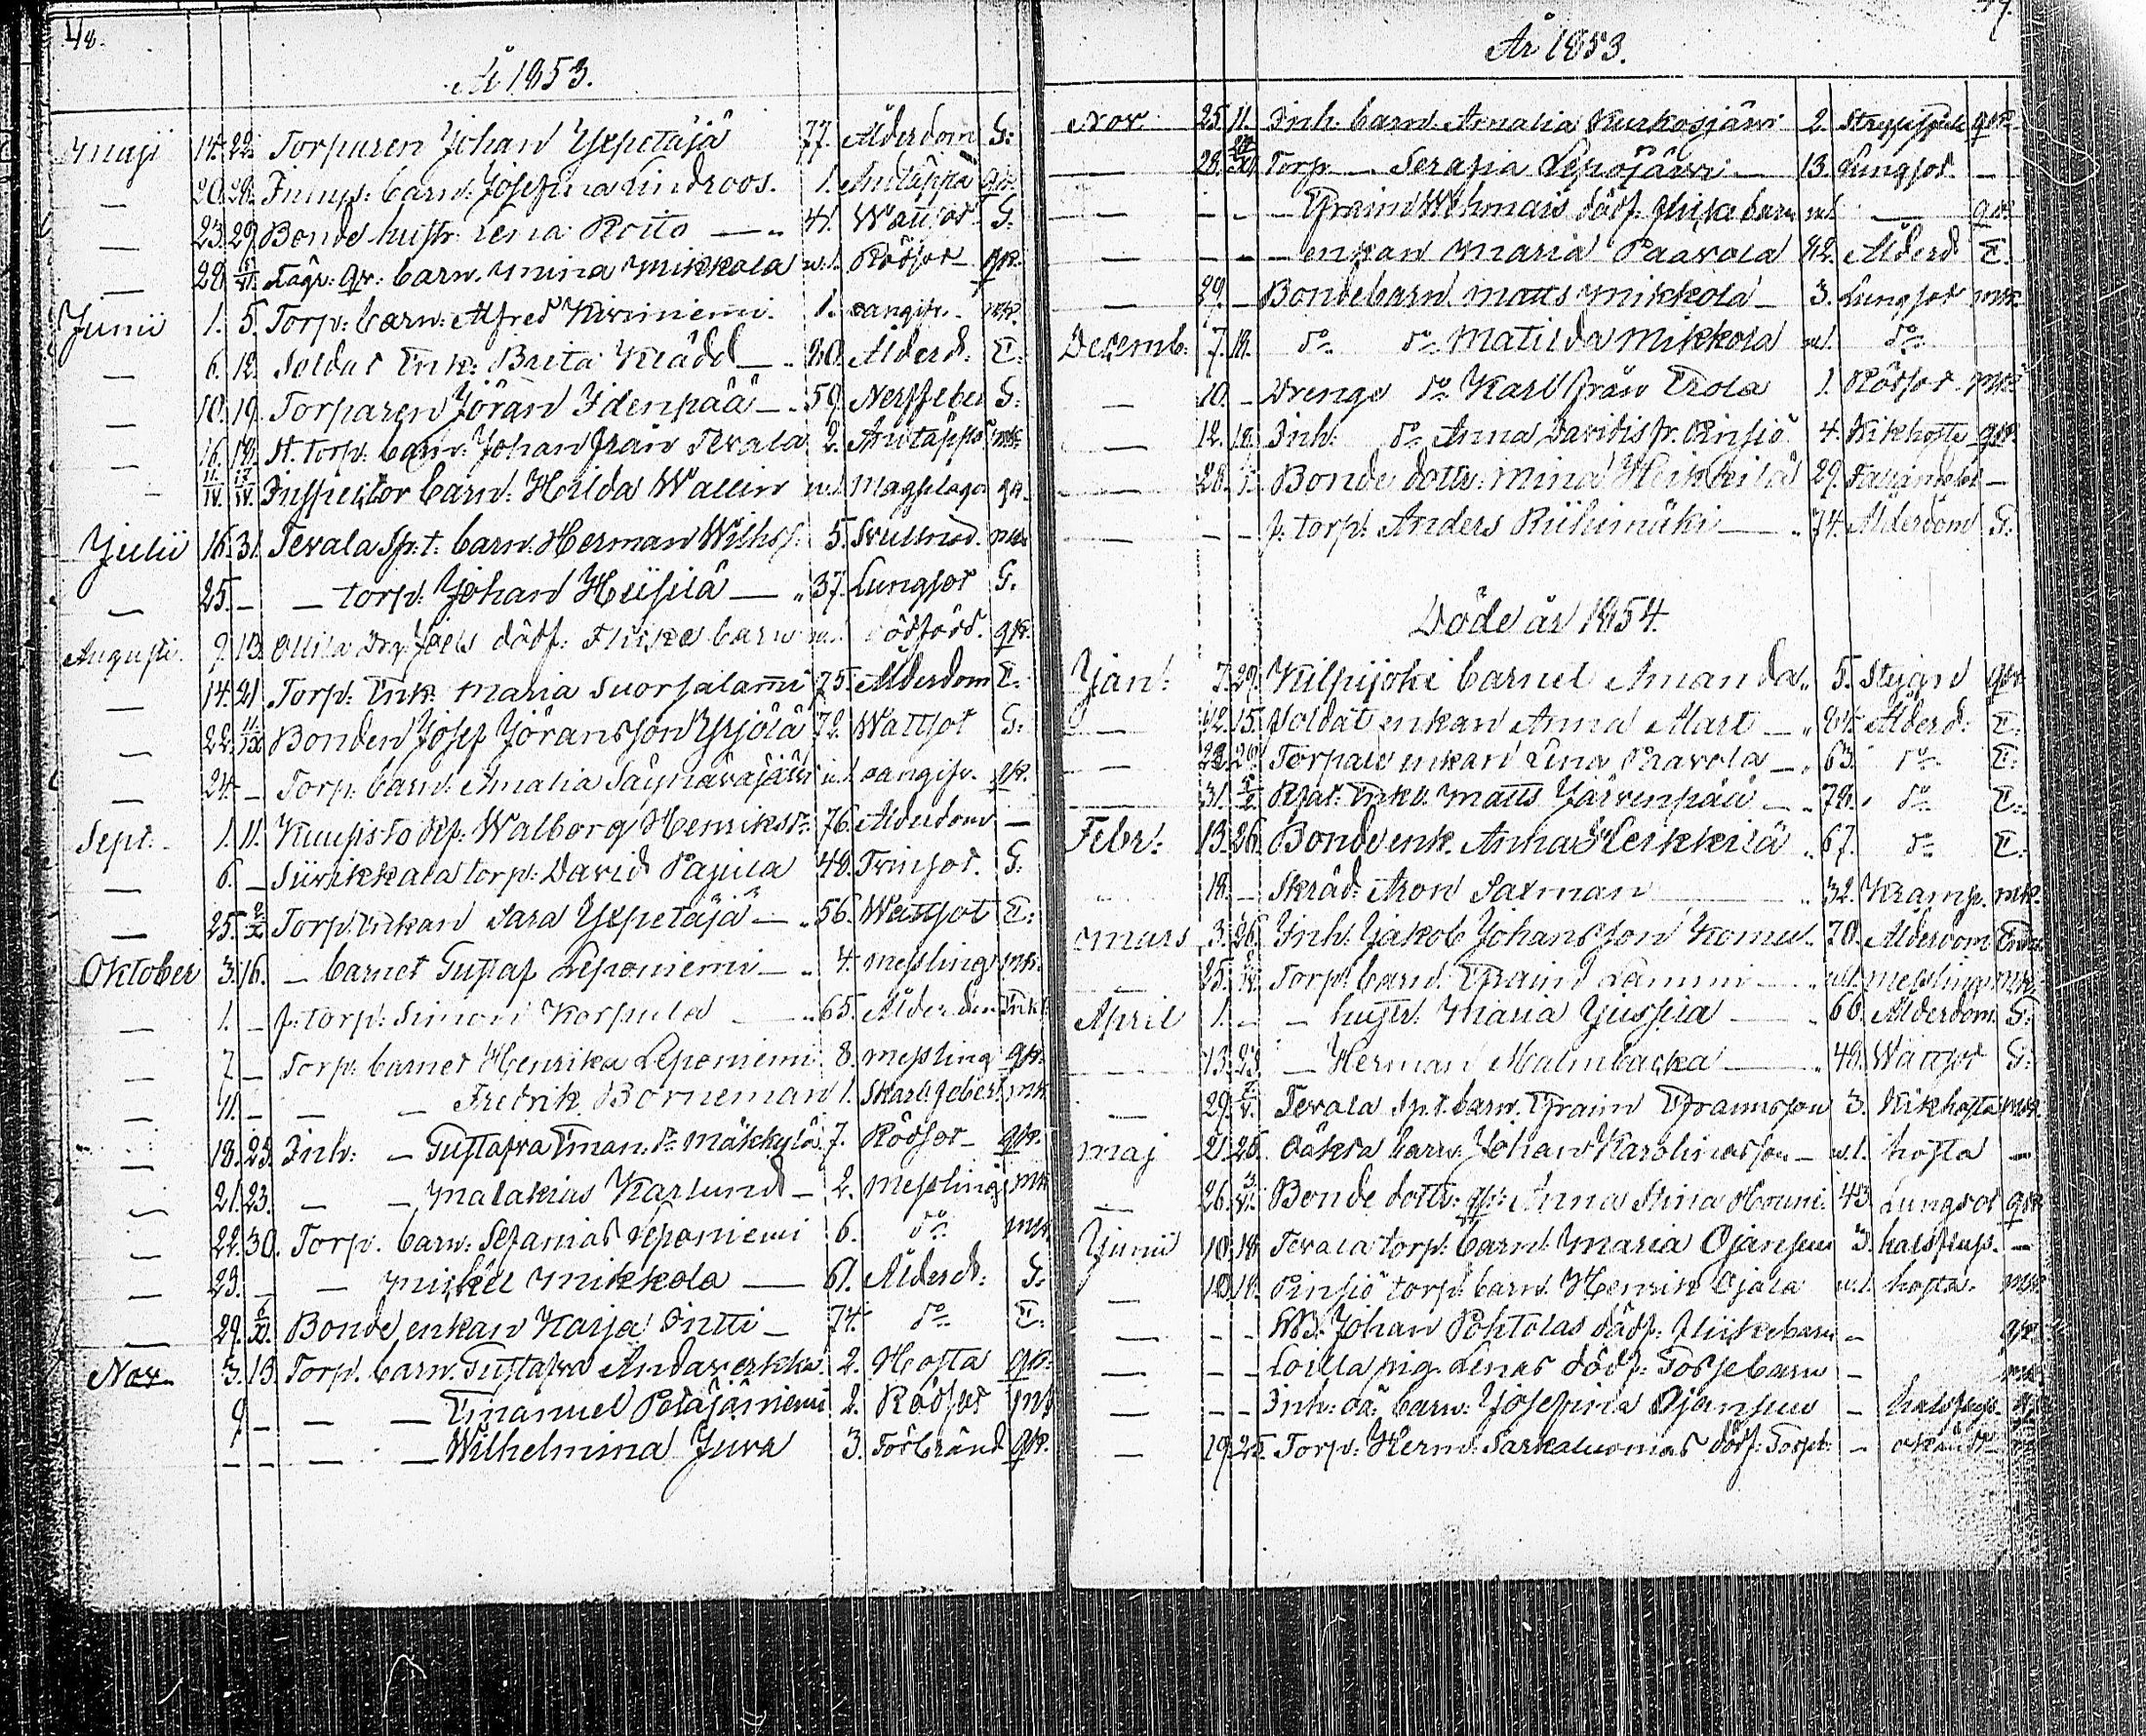 48.
År 1853.
Maji 14. 22. Torparen Johan Ypetäjä 77. Ålderdom G:
— 20. 28. Inhys: barn: Josefina Lindroos. 1. qv.
— 23. 29. Bonde hustr: Lena Roito — „ 41. Wattsot G:
— 28. 6/VI. qv: barn. Mina Mikkola u.1. Rödsot qk.
Junii 1. 5. Torp: barn: Alfred Kiviniemi. 1. mk.
— 6. 12. Soldat Enk: Brita Klädd — „ 80. Ålderd: E:
— 10. 19. Torparen Jöran Idenpää — „ 59. G:
— 16. 18. St. torp: barn: Johan från Tevala 2. Antäppa mk.
— 11/IV. 17/IV. Inspector barn: Hilda Wallin u.1. Magplåga qk.
Julii 16. 31. Tevala Sp: t: barn: Herman Wilhs: 5. mk.
— 25. — — torp: Johan Heisilä — „ 37. Lungsot G.
Augusti. 9. 13. Ollila Drg. dödf: Flicke barn qk.
— 14. 21. Torp: Enk: Maria Suorsalami 75. Ålderdom E.
— 22. 11/IX Bonden Josef Jöransson Yrjölä 72. Wattsot G:
— 24. — Torp: barn: Amalia Säynäväjärvi u.1. qk.
Sept. 1. 11. Kuusisto Walborg Henriksdr. 76. Ålderdom —
— 6. — Siurikkala torp: David Pajula 48. Tvinsot. G:
— 25. 2/X Torp. Enkan Sara Ypetäjä — „ 56. Wattsot E:
Oktober 3. 16. — barnet Gustaf Leponiemi — „ 4. messling mk.
— 1. — f: torp: Simon Korpula — „ 65. Ålderdom Enkl.
— 7. — Torp: barnet Henrika Leponiemi 8. messling qk:
— 11. — — — Fredrik Borneman 1. Skarl. feber mk
— 18. 23. Inh: — Gustafva Eman. dr Mäkkylä 7. Rödsot qk.
— 21. 23. — — Malakias Karlund — 2. messling mk
— 22. 30. Torp. barn: Sefanias Leponiemi 6. do mk
— 23. — — Mickel Mikkola — 61. Ålderd: G:
— 29. 6/XI. Bonde enkan Kaisa Intti — 74. do E:
Nov. 3. 13. Torp. barn. Gustafva Andaverkka. 2. Hosta qk.
9. — — — Emanuel Petäjäniemi 2. Rödsot mk
— — — Wilhelmina Jura 3. qk.
År 1853.
Nov. 25. 11. Inh. barn: Amalia Kurkosjärvi 2. qk.
— 28. Torp — Serafia Lepojärvi — 13. Lungsot. —
— — — — Efraim Wehmais dödf. flicke barn u.1. — qk.
— — — — enkan Maria Paavola 82. Ålderd. E.
— 29. — Bonde barn. Matts Mikkola — 3. Lungsot mk
Decemb: 7. 18. do do Matilda Mikkola u.1. do
— 10. — Drengs do Karl från Erola 1. Rödsot mk
— 12. 18. Inh: do Anna Davidsdr. Pinsiö 4. Kikhosta qk.
— 28. 1. Bonde dottr: Mina Heikkilä 29. —
— — — f. torp: Anders Riihimäki — „ 74. Ålderdom G:
Döde år 1854.
Jan: 7. 29. Kilpijoki barnet Amanda „ 5. Stygn qk
— 12. 15. Soldat enkan Anna Alart — „ 84. Ålderd: E:
— 22. 29. Torpare enkan Lena Paavola — „ 63. do E:
— 31. 5/2. Enka. Matts Järvenpää — „ 78. do E:
Febr: 13. 26. Bonde enk. Anna Heikkilä „ 67. do E:
„ 18. — Skräd: Aron Saxman — „ 32. Kramp. mk.
Mars 3. 26. Inh. Jakob Johansson Komu „ 70. Ålderdom
— 25. Torp: barn: Efraim Lammi — u.1. Messling mk.
April 1. — — hustr. Maria Jussila — 66. Ålderdom. G:
— 13. 23. — Herman Malmbacka — „ 48. Wattsot G:
— 29. 7/V. Tevala Sp. t. barn. Efraim Efraimsson 3. Kikhosta mk.
Maj 21. 25. barn. Johan Karolinasson — u.1. hosta —
— 26. 3/VI. Bonde dottr: qv: Anna Stina Houni. 43. Lungsot qk
Junii 10. 18. Tevala torp: barn: Maria Ojansuu 3. —
— 10. 18. Pinsiö torp: barn: Henrik Ojala u.1. hosta. mk.
— — — Johan Pohtolas dödf: flickebarn — qk.
— — — Loilla pig. Lenas dödf: Gossebarn — mk
— — — Inh: barn: Josefina Ojansuu —
— 19. 25. Torp: Herm: Sarkaluomas dödf: —